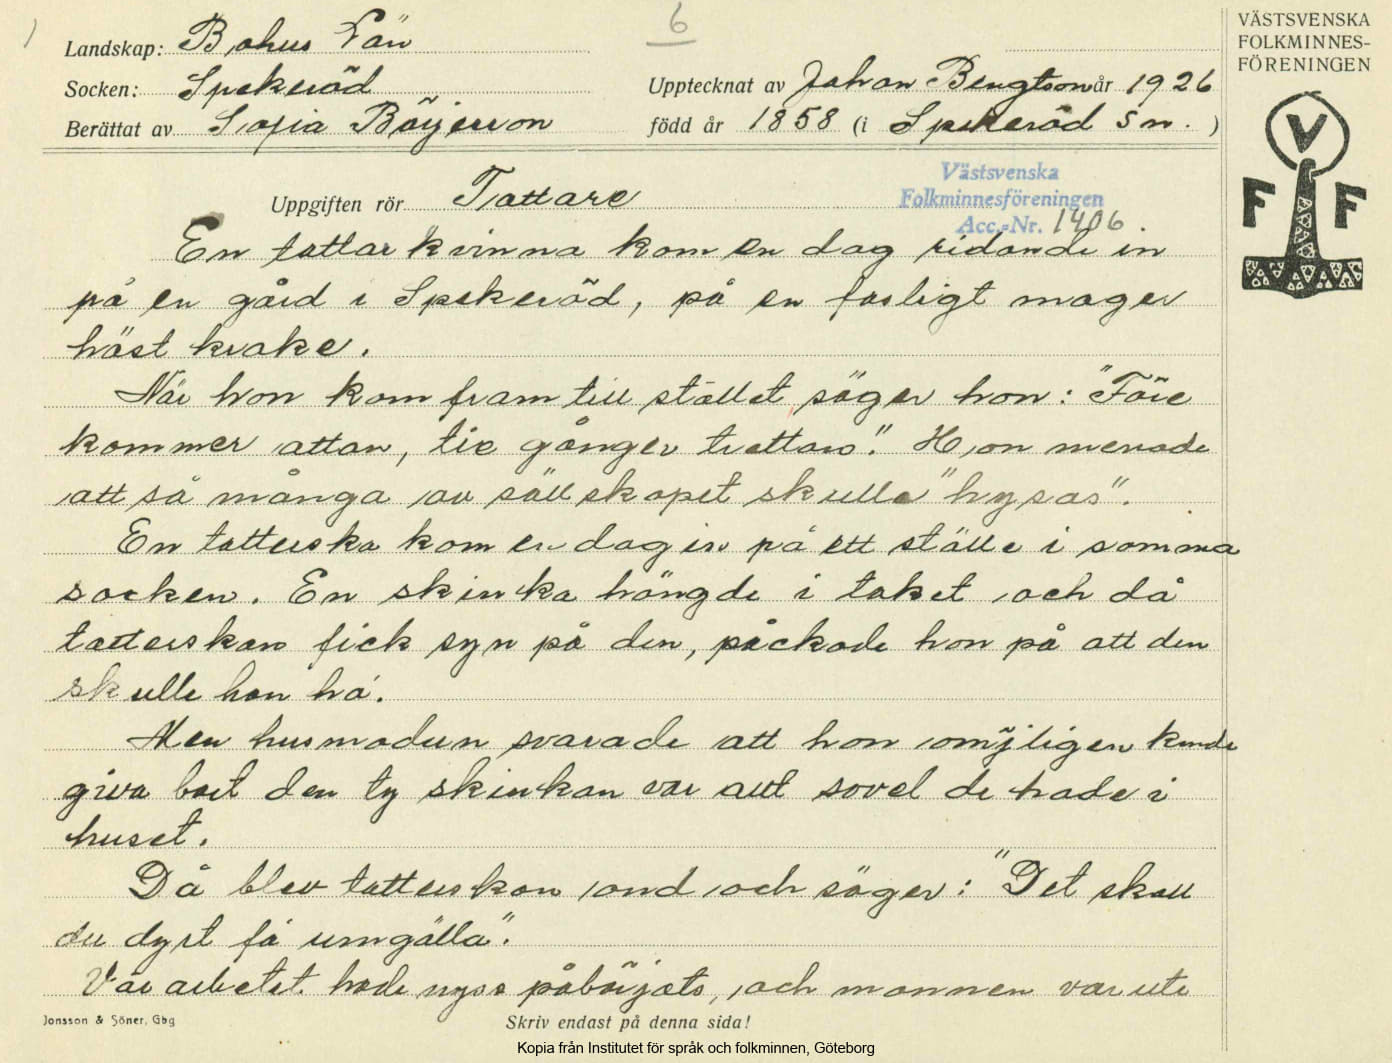 6
Landskap: Bohus Län
Socken: Spekeröd
Upptecknat av Johan Bengtson år 1926
Berättat av Sofia Börjesson
född år 1858 (i Spekeröd sn. )
VÄSTSVENSKA
FOLKMINNES-
FÖRENINGEN
V
F F
Uppgiften rör Tattare
Västsvenska
Folkminnesföreningen
Acc.-Nr. 1406
En tattarkvinna kom en dag ridande in
på en gård i Spekeröd, på en farligt mager
häst krake.
När hon kom fram till stället säger hon: "Före
kommer attan, tie gånger trettan". Hon menade
att så många av sällskapet skulle "hysas".
En tatterska kom en dag in på ett ställe i samma
socken. En skinka hängde i taket och då
tatterskan fick syn på den, påckade hon på att den
skulle hon ha.
Men husmodern svarade att hon omöjligen kunde
giva bort den ty skinkan var allt sovel de hade i
huset.
Då blev tatterskan ond och säger: "Det skall
du dyrt få umgälla".
Vårarbetet hade nyss påbörjats, och mannen var ute
Jonsson & Söner, Gbg
Skriv endast på denna sida!
Kopia från Institutet för språk och folkminnen, Göteborg